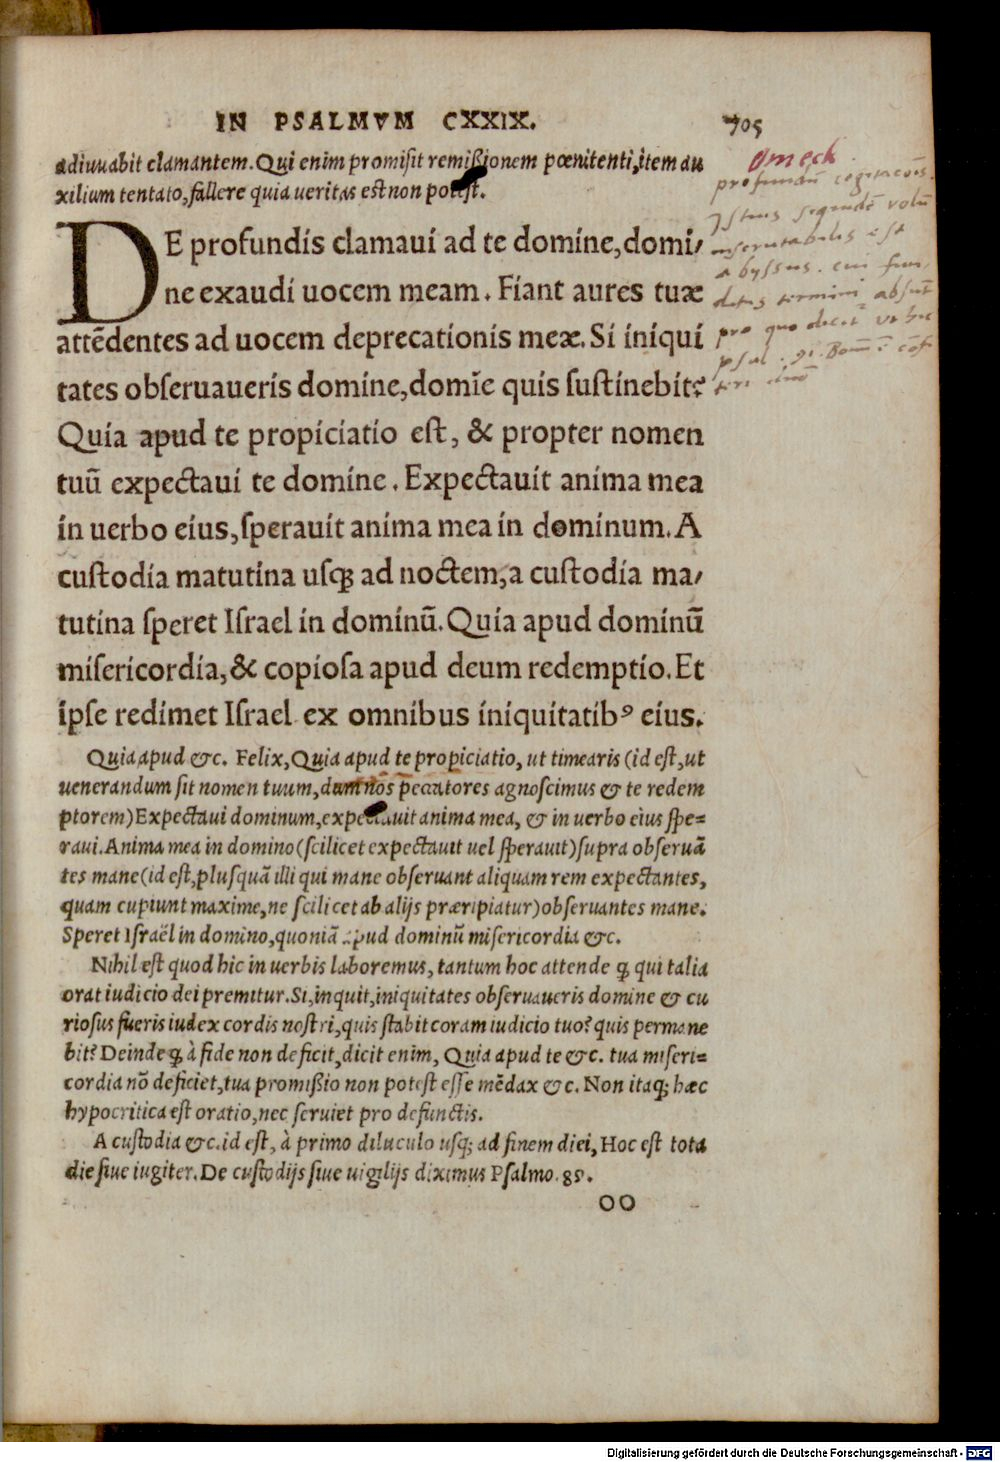 IN PSALMVM CXXIX. 705
adiuuabit clamantem. Qui enim promisit remißionem pœnitenti, item au
xilium tentato, fallere quia veritas est non potest.
DE profundis clamaui ad te domine, domi/
ne exaudi uocem meam. Fiant aures tuæ
attēdentes ad uocem deprecationis meæ. Si iniqui
tates obseruaueris domine, domīe quis sustinebit?
Quia apud te propiciatio est, & propter nomen
tuū expectaui te domine. Expectauit anima mea
in uerbo eius, sperauit anima mea in dominum. A
custodia matutina usq; ad noctem, a custodia ma/
tutina speret Israel in dominū. Quia apud dominū
misericordia, & copiosa apud deum redemptio. Et
ipse redimet Israel ex omnibus iniquitatibꝰ eius.
Quia apud &c. Felix, Quia apud te propiciatio, ut timearis (id est, ut
uenerandum sit nomen tuum, dum nos peccatores agnoscimus & te redem
ptorem) Expectaui dominum, expectauit anima mea, & in uerbo eius spe=
raui. Anima mea in domino (scilicet expectauit uel sperauit) supra obseruā
tes mane (id est, plusquā illi qui mane obseruant aliquam rem expectantes,
quam cupiunt maxime, ne scilicet ab alijs præripiatur) obseruantes mane.
Speret Israël in domino, quoniā apud dominū misericordia &c.
Nihil est quod hic in uerbis laboremus, tantum hoc attende ꝙ qui talia
orat iudicio dei premitur. Si, inquit, iniquitates obseruaueris domine & cu
riosus fueris iudex cordis nostri, quis stabit coram iudicio tuo? quis permane
bit? Deinde ꝙ à fide non deficit, dicit enim, Quia apud te &c. tua miseri=
cordia nō deficiet, tua promißio non potest esse mēdax &c. Non itaq; hæc
hypocritica est oratio, nec seruiet pro defunctis.
A custodia &c. id est, à primo diluculo usq; ad finem diei, Hoc est tota
die siue iugiter. De custodijs siue uigilijs diximus Psalmo. 89.
OO
Omeck
profundū cogitacōis.
abyssus. cui fun
termini absunt
pro quo dicit ut hic
psal. 91. Bonū ē cōfi
teri dnō
Digitalisierung gefördert durch die Deutsche Forschungsgemeinschaft - DFG